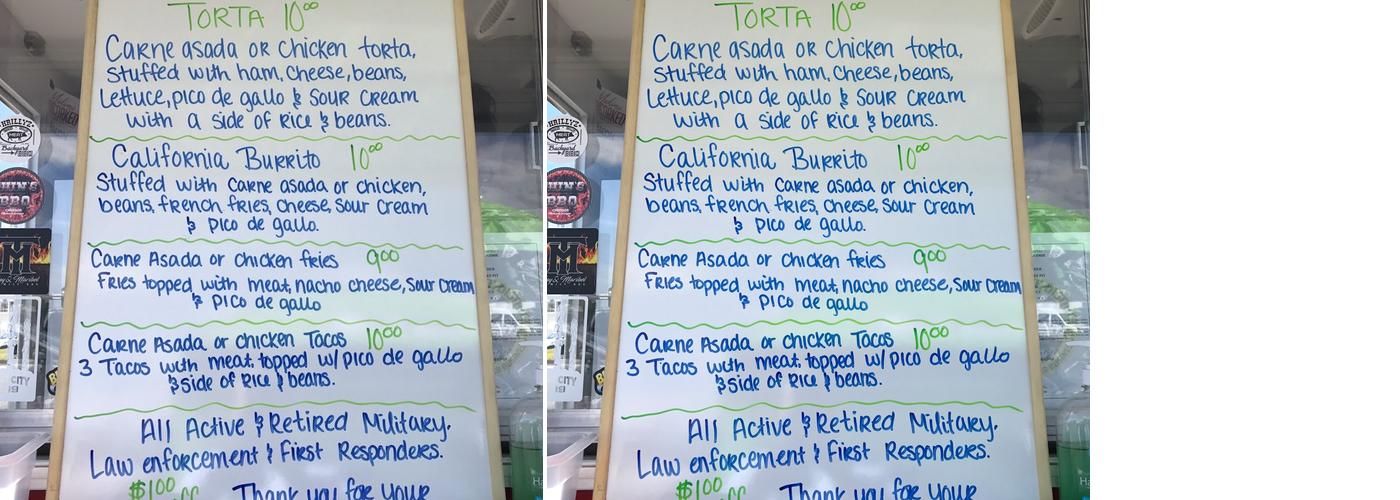 TORTA 10⁰⁰
Carne asada or chicken torta,
stuffed with ham, cheese, beans,
Lettuce, pico de gallo & sour cream
with a side of rice & beans.
California Burrito 10⁰⁰
Stuffed with carne asada or chicken,
beans, french fries, cheese, sour cream
& pico de gallo.
Carne Asada or chicken fries 9⁰⁰
Fries topped with meat, nacho cheese, sour cream
& pico de gallo
Carne Asada or chicken Tacos 10⁰⁰
3 Tacos with meat, topped w/ pico de gallo
& side of rice & beans.
All Active & Retired Military.
Law enforcement & First Responders.
$1⁰⁰
Thank you for your
MEAT
Backyard
BBQ
CITY
TORTA 10⁰⁰
Carne asada or chicken torta,
stuffed with ham, cheese, beans,
Lettuce, pico de gallo & sour cream
with a side of rice & beans.
California Burrito 10⁰⁰
Stuffed with carne asada or chicken,
beans, french fries, cheese, sour cream
& pico de gallo.
Carne Asada or chicken fries 9⁰⁰
Fries topped with meat, nacho cheese, sour cream
& pico de gallo
Carne Asada or chicken Tacos 10⁰⁰
3 Tacos with meat, topped w/ pico de gallo
& side of rice & beans.
All Active & Retired Military.
Law enforcement & First Responders.
$1⁰⁰
Thank you for your
MEAT
Backyard
BBQ
CITY